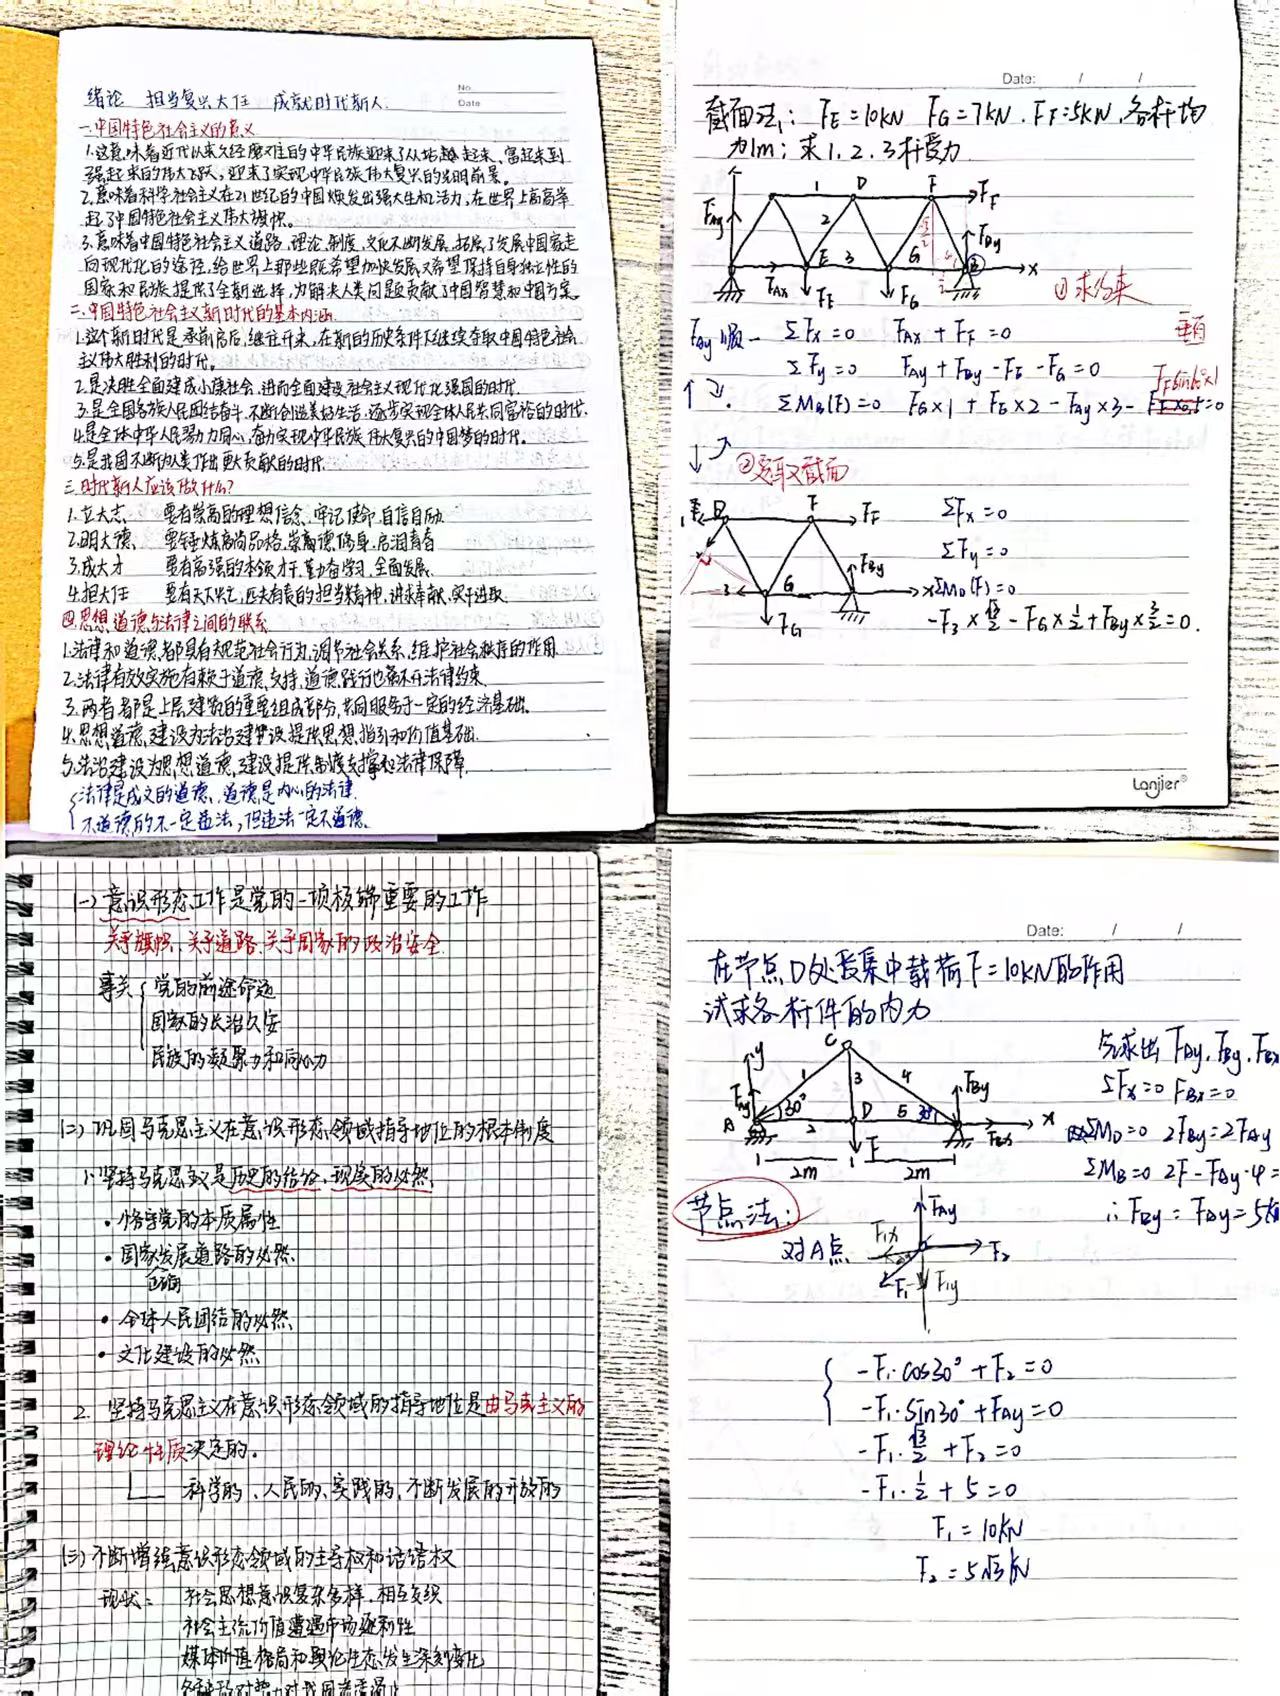 No
Date
绪论 担当复兴大任 成就时代新人.
一.中国特色社会主义的意义
1.这意味着近代以来久经磨难的中华民族迎来了从站起来、富起来到
强起来的伟大飞跃,迎来了实现中华民族伟大复兴的光明前景。
2.意味着科学社会主义在21世纪的中国焕发出强大生机活力,在世界上高高举
起了中国特色社会主义伟大旗帜。
3.意味着中国特色社会主义道路、理论、制度、文化不断发展,拓展了发展中国家走
向现代化的途径,给世界上那些既希望加快发展又希望保持自身独立性的
国家和民族提供了全新选择,为解决人类问题贡献了中国智慧和中国方案。
二.中国特色社会主义新时代的基本内涵
1.这个新时代是承前启后、继往开来,在新的历史条件下继续夺取中国特色社会
主义伟大胜利的时代。
2.是决胜全面建成小康社会、进而全面建设社会主义现代化强国的时代.
3.是全国各族人民团结奋斗、不断创造美好生活、逐步实现全体人民共同富裕的时代.
4.是全体中华人民勠力同心,奋力实现中华民族伟大复兴的中国梦的时代。
5.是我国不断为人类作出更大贡献的时代.
三.时代新人应该做什么?
1.立大志 要有崇高的理想信念,牢记使命,自信自励.
2.明大德 要锤炼高尚品格,崇高德修身,启润青春
3.成大才 要有高强的本领才干,勤奋学习,全面发展.
4.担大任 要有天下兴亡,匹夫有责的担当精神,讲求奉献,实干进取.
四.思想道德与法律之间的联系
1.法律和道德,都具有规范社会行为,调节社会关系,维护社会秩序的作用.
2.法律有效实施有赖于道德支持,道德践行也离不开法律约束.
3.两者都是上层建筑的重要组成部分,共同服务于一定的经济基础.
4.思想道德建设为法治建设提供思想指引和价值基础.
5.法治建设为思想道德建设提供制度支撑和法律保障.
法律是成文的道德,道德是内心的法律.
不道德的不一定违法,但违法一定不道德.
Date: / /
截面法: FE=10kN FG=7kN. FF=5kN, 各杆均
为1m; 求1.2.3杆受力
1 D F FF
FAy 2 FBy
E 3 G B x
FAx FE FG
①求约束
FAy顺- ΣFx=0 FAx+FF=0
ΣFy=0 FAy+FBy-FE-FG=0
FFsin60°×1
ΣMB(F)=0 FG×1+FE×2-FAy×3-FF×0.5=0
②要取截面
F FF ΣFx=0
ΣFy=0
3 G FBy x ΣMD(F)=0
FG -F3×√3/2-FG×1/2+FBy×3/2=0.
Lanjier®
(一)意识形态工作是党的一项极端重要的工作
关乎旗帜、关乎道路、关乎国家的政治安全.
事关 党的前途命运
国家的长治久安
民族的凝聚力和向心力
(二)巩固马克思主义在意识形态领域指导地位的根本制度
1.坚持马克思主义是历史的结论、现实的必然.
·恪守党的本质属性
·国家发展道路的必然.
正确
·全体人民团结的必然.
·文化建设的必然
2. 坚持马克思主义在意识形态领域的指导地位是由马克主义的
理论性质决定的。
科学的、人民的、实践的、不断发展的开放的
(三)不断增强意识形态领域的主导权和话语权
现状: 社会思想意识复杂多样,相互交织
社会主流价值遭遇市场逐利性
媒体价值格局和舆论生态发生深刻变化
Date: / /
在节点D处受集中载荷F=10kN的作用
试求各杆件的内力
y C
FAy 1 3 4 FBy
A 30° 2 D 5 30° x
F FBx
2m 2m
先求出FAy.FBy.FBx
ΣFx=0 FBx=0
ΣMD=0 2FBy=2FAy
ΣMB=0 2F-FAy·4=
∴FBy=FAy=5k
节点法:
对A点
FAy
F1x F2
F1 F1y
-F1·cos30°+F2=0
-F1·sin30°+FAy=0
-F1·√3/2+F2=0
-F1·1/2+5=0
F1=10kN
F2=5√3kN